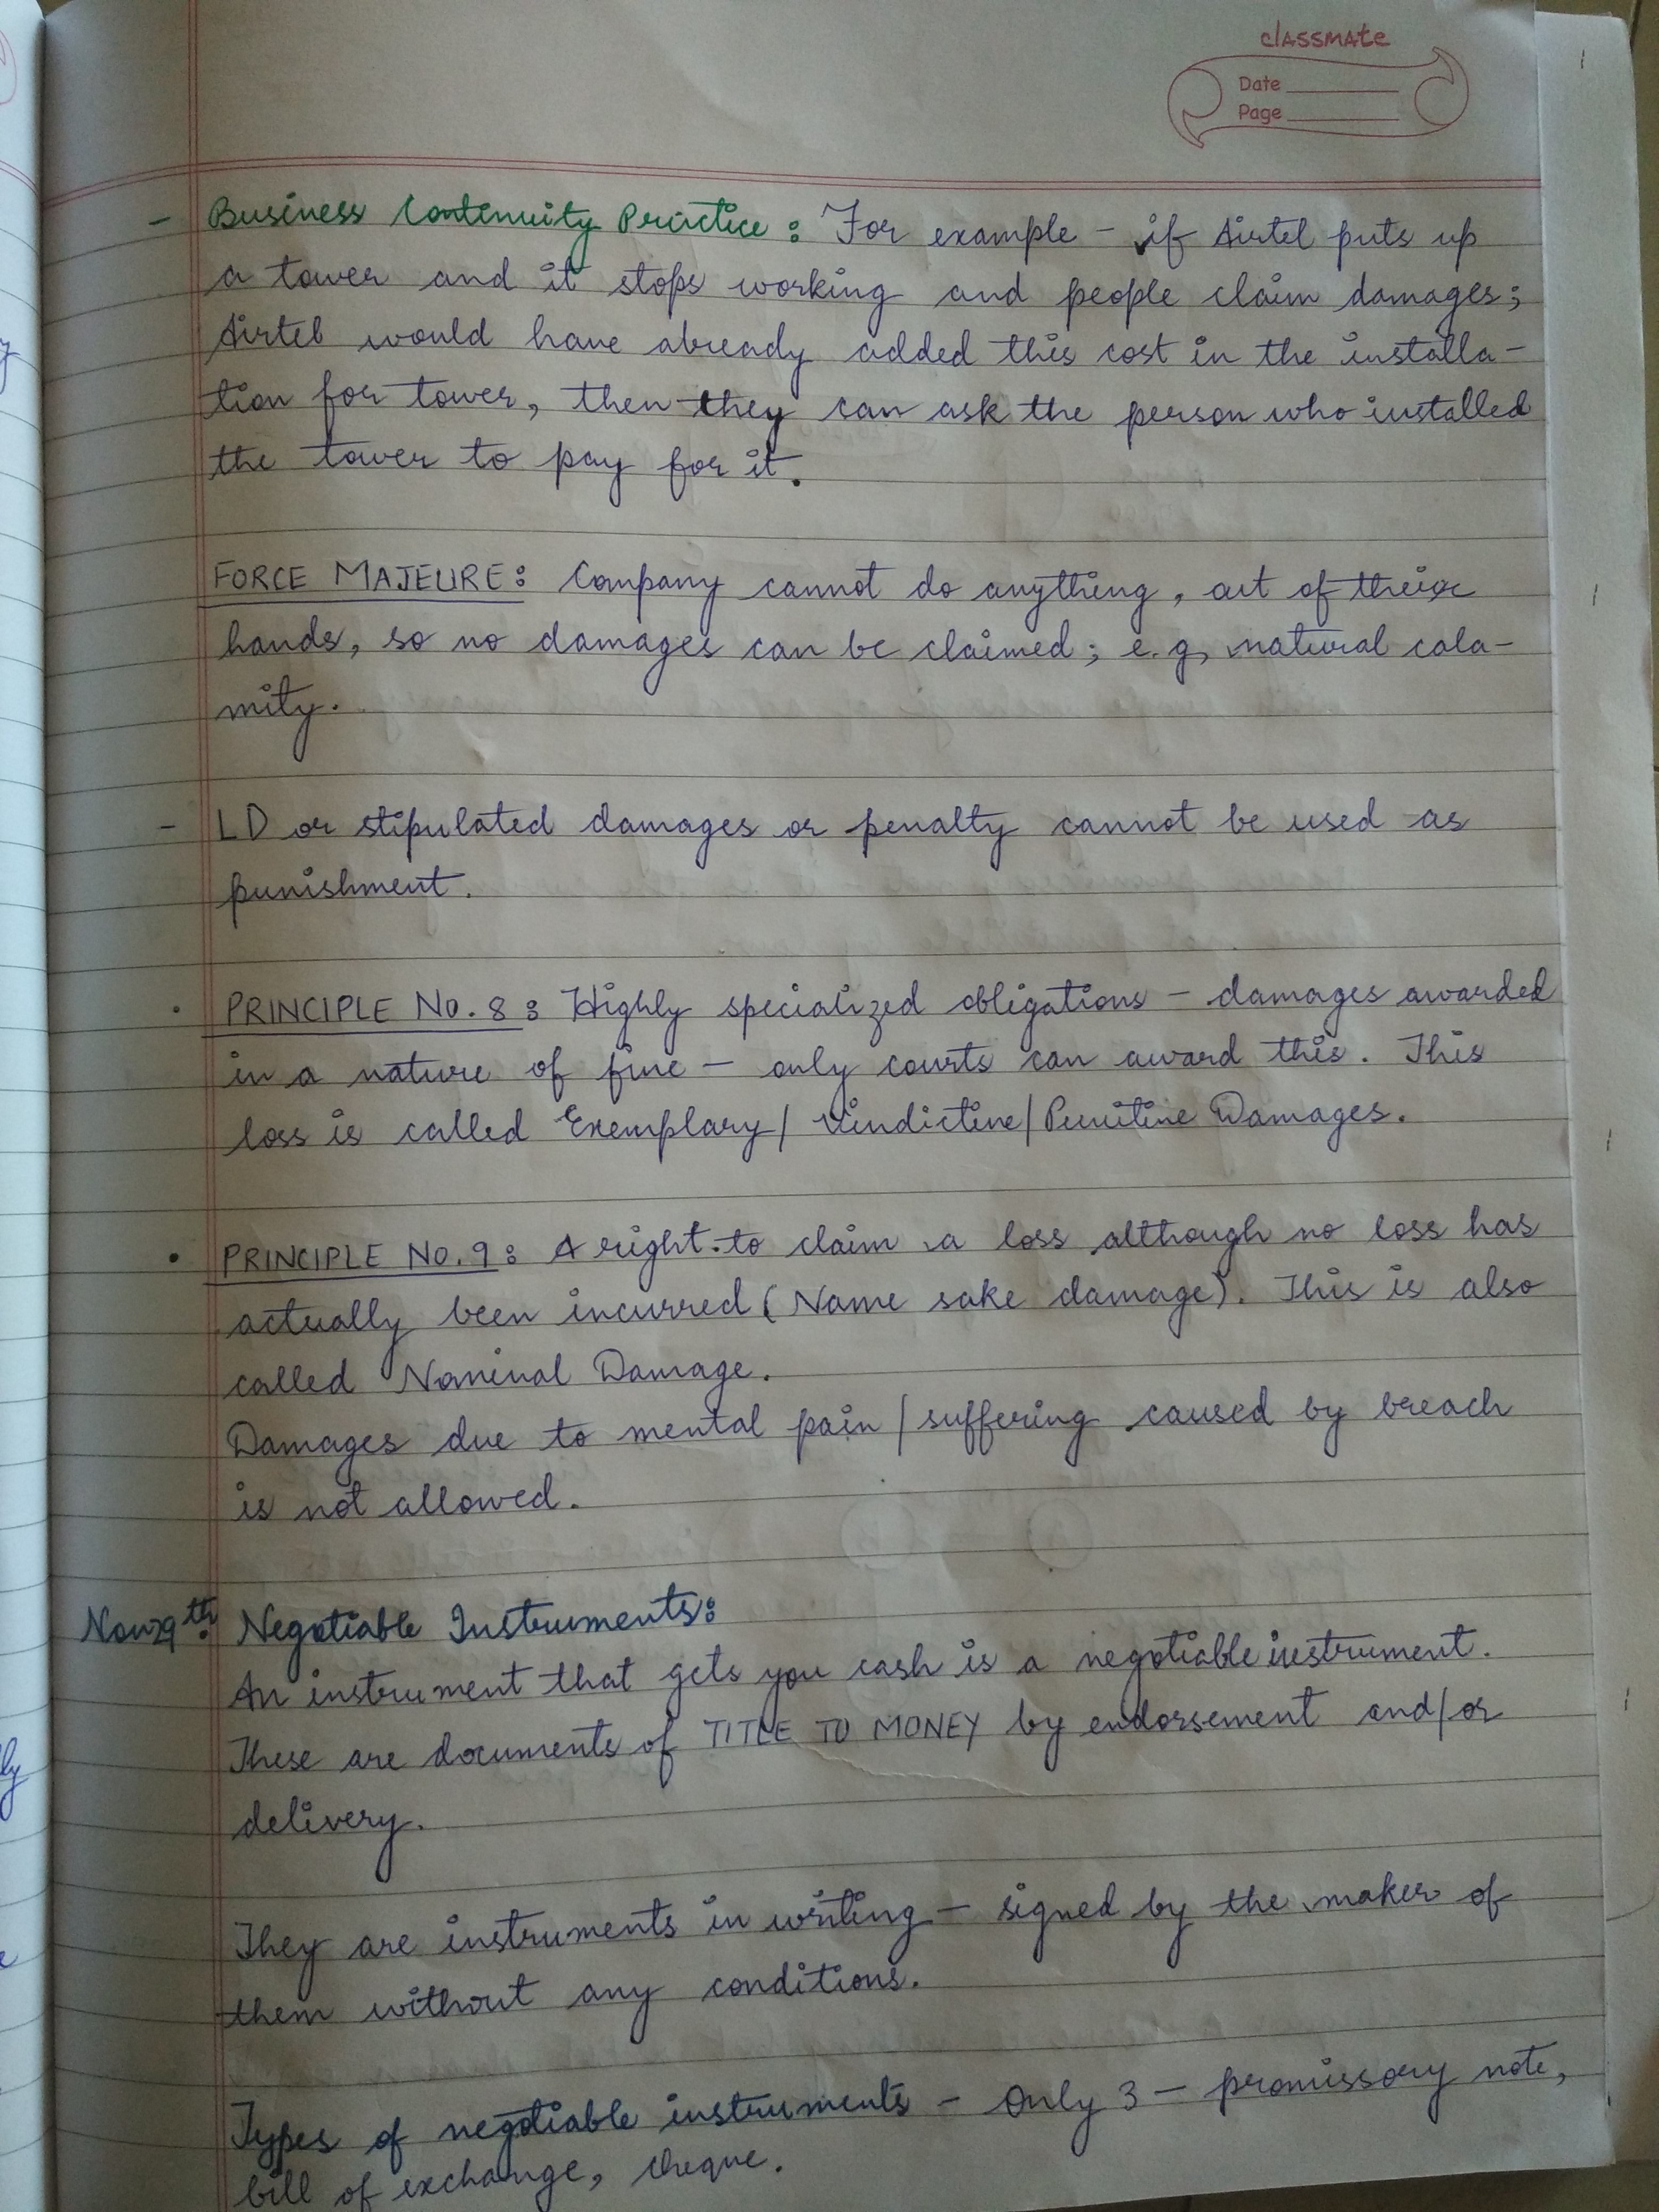 classmate
Date
Page
- Business Continuity Practice : For example - if Airtel puts up
a tower and it stops working and people claim damages;
Airtel would have already added this cost in the installa-
tion for tower, then they can ask the person who installed
the tower to pay for it.
FORCE MAJEURE: Company cannot do anything, out of their
hands, so no damages can be claimed; e.g, natural cala-
mity.
- LD or stipulated damages or penalty cannot be used as
punishment.
• PRINCIPLE NO. 8 : Highly specialized obligations - damages awarded
in a nature of fine - only courts can award this. This
loss is called Exemplary/ Vindictive/ Punitive Damages.
• PRINCIPLE NO. 9 : A right to claim a loss although no loss has
actually been incurred (Name sake damage). This is also
called Nominal Damage.
Damages due to mental pain / suffering caused by breach
is not allowed.
Nov 29th. Negotiable Instruments:
An instrument that gets you cash is a negotiable instrument.
These are documents of TITLE TO MONEY by endorsement and/or
delivery.
They are instruments in writing - signed by the maker of
them without any conditions.
Types of negotiable instruments - only 3 - promissory note,
bill of exchange, cheque.